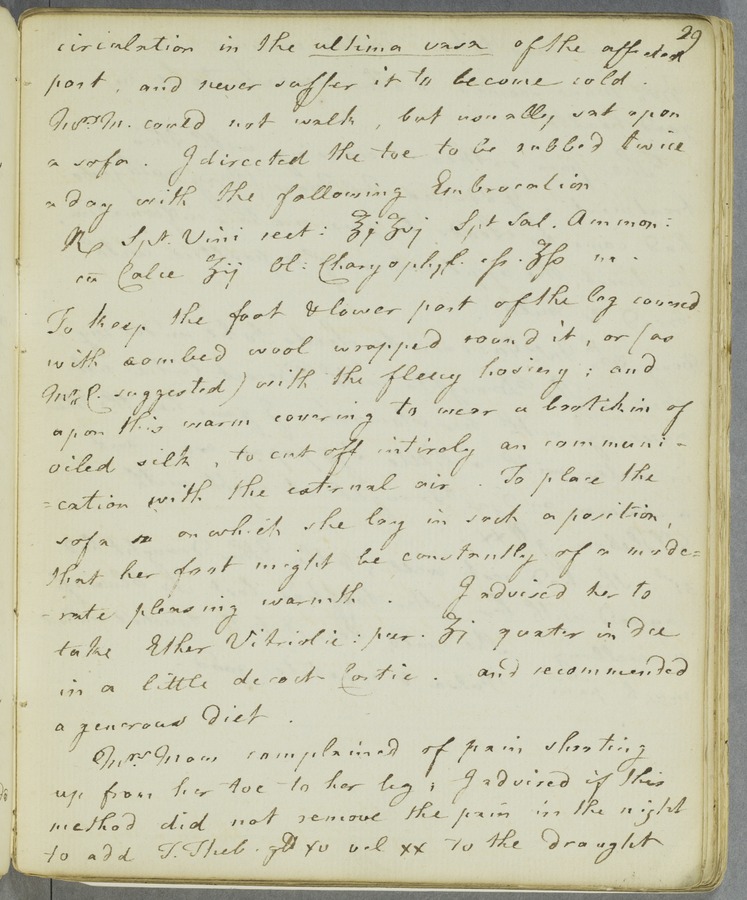 29
circulation in the ultima vasa of the affected
part, and never suffer it to become cold.
Mrs. M. could not walk, but usually sat upon
a sofa. I directed the toe to be rubbed twice
a day with the following Embrocation
℞ Spt. Vini rect: ℥j ʒvj Spt Sal. Ammon:
Calce ʒij Ol: Charyophyl. ʒſs m.
To keep the foot & lower part of the leg covered
with combed wool wrapped round it, or (as
suggested) with the fleecy hosiery; and
upon this warm covering to wear a bootikin of
oiled silk, to cut off intirely an communi-
=cation with the external air. To place the
sofa on which she lay in such a position,
that her foot might be constantly of a mode=
-rate pleasing warmth. I advised her to
take Ether Vitriolic: pur. ʒj quater in die
in a little decoct Cortic. and recommended
a generous Diet.
Mrs. complained of pain shooting
up from her toe to her leg; I advised if this
method did not remove the pain in the night
to add T. Theb. xv vel xx to the draught